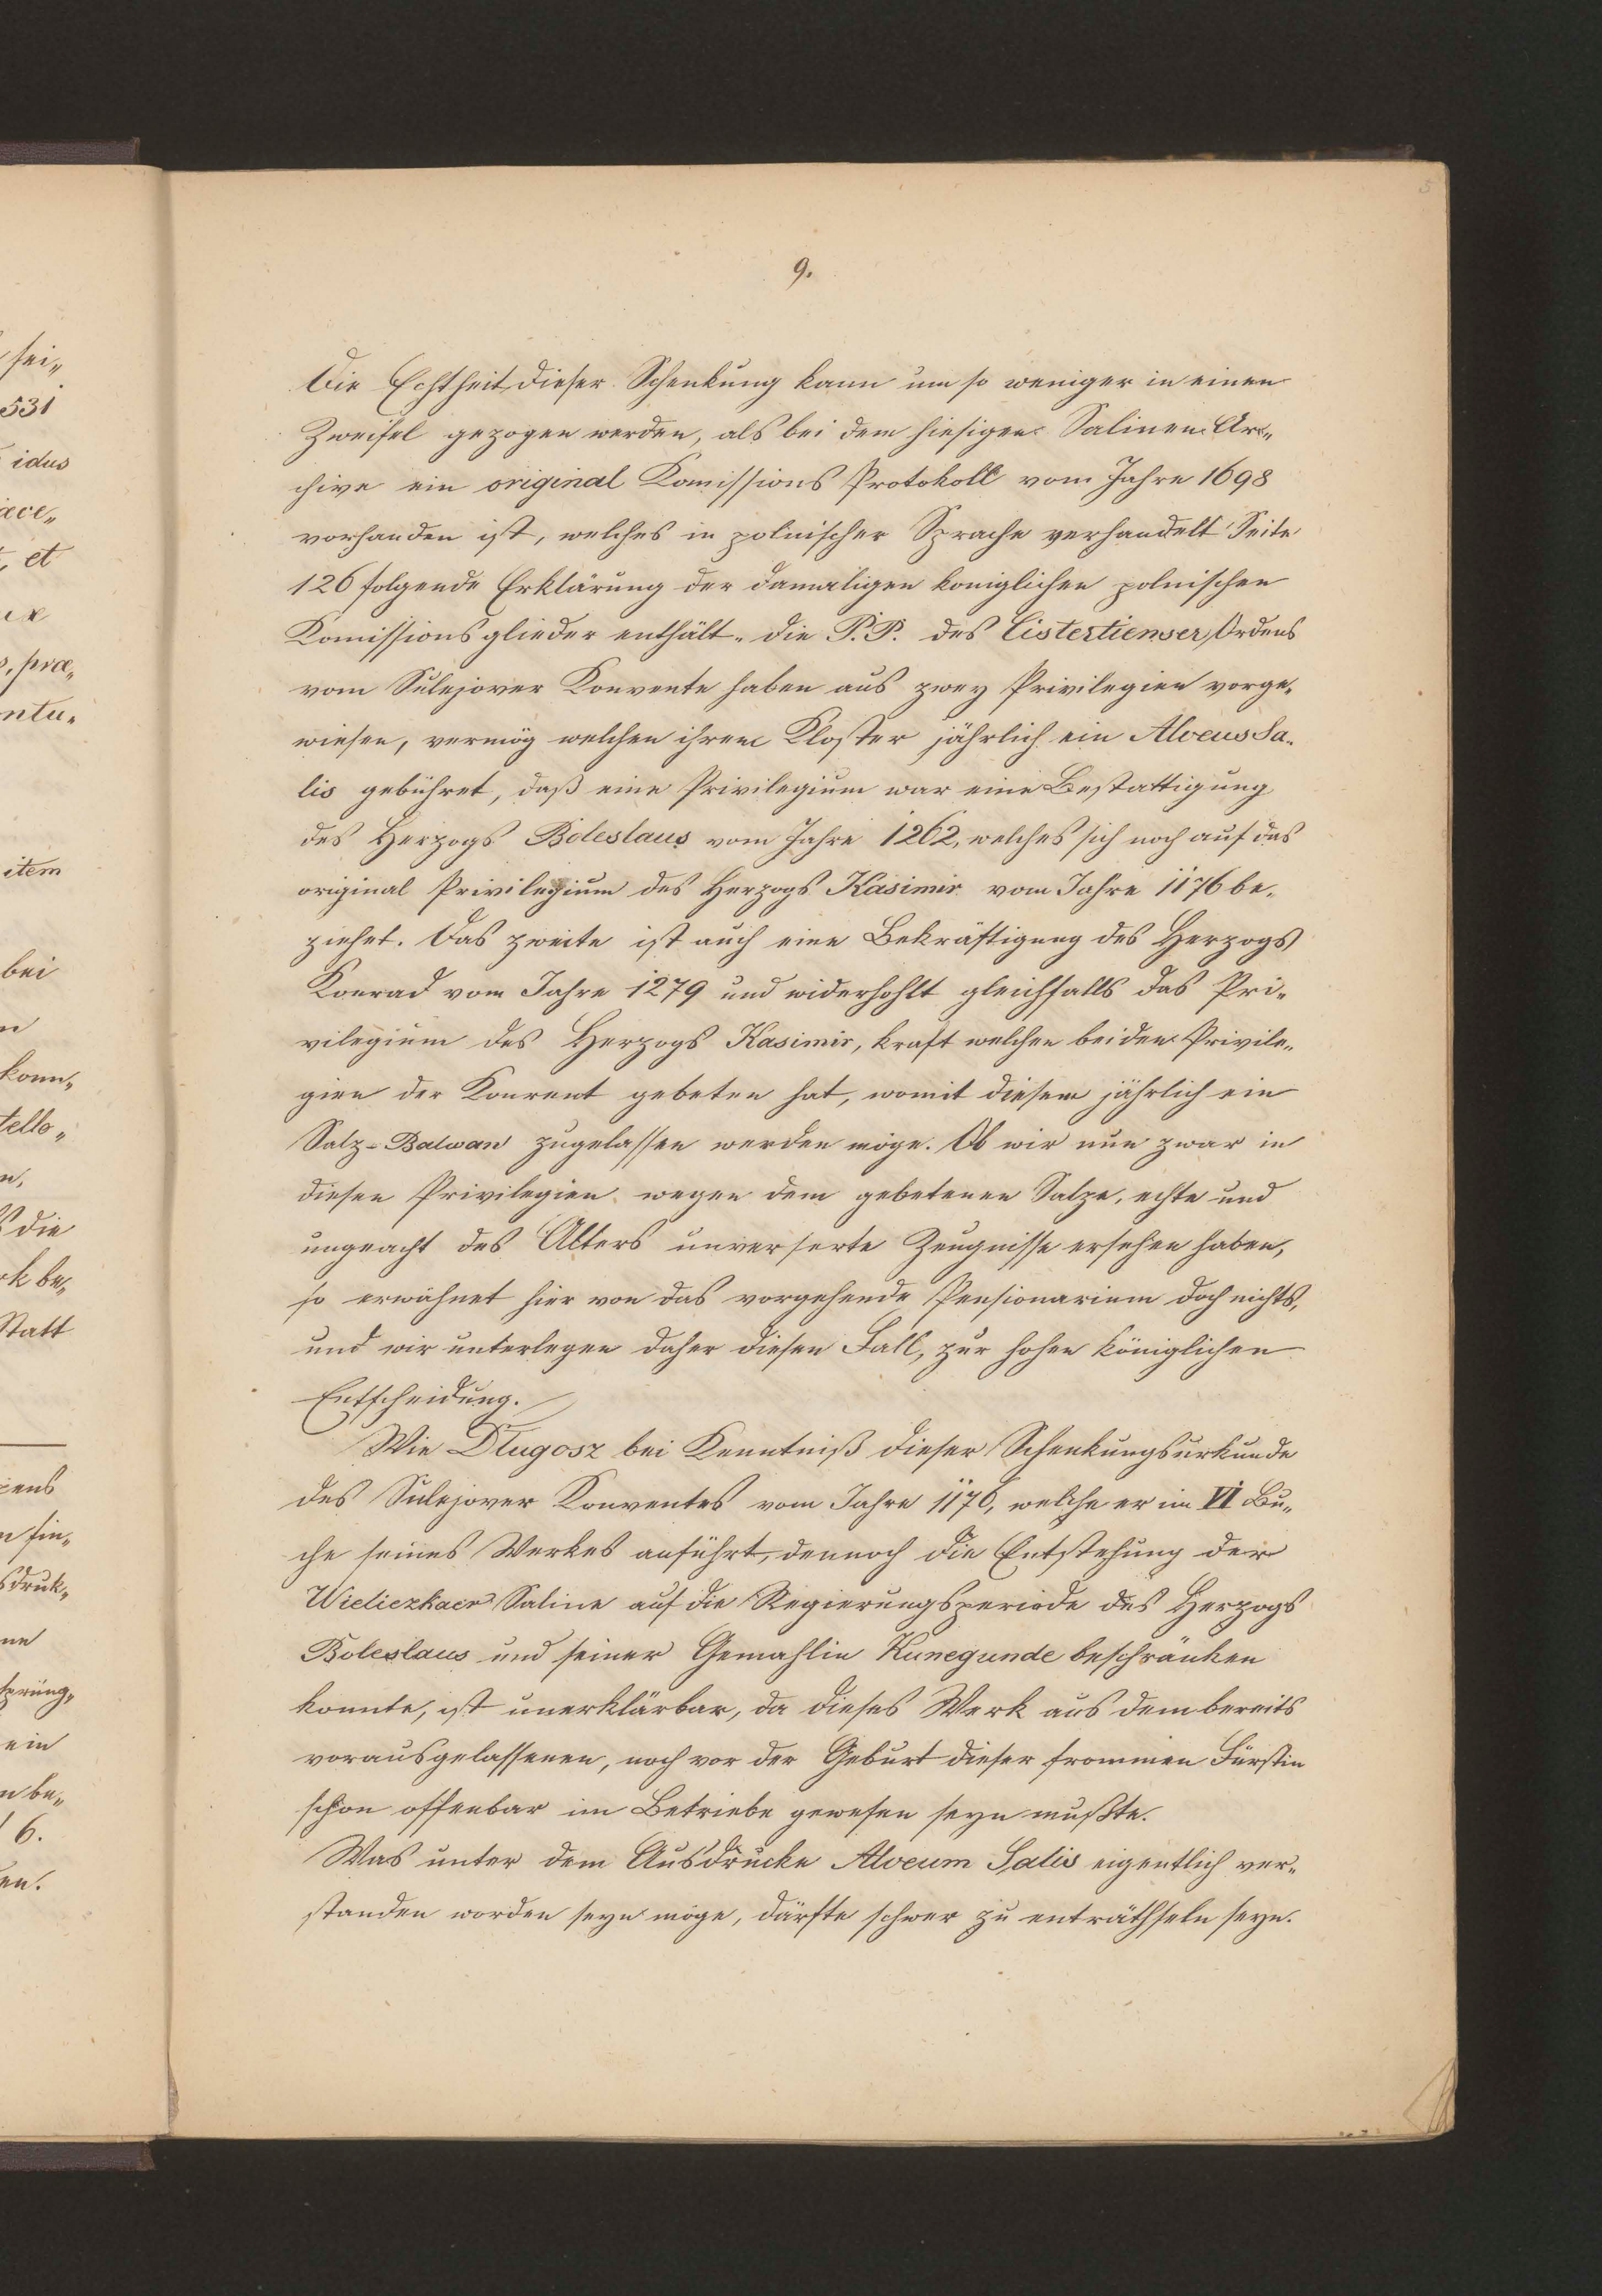 9.
Die Echtheit dieser Schenkung kann um so weniger in einen
Zweifel gezogen werden, als bei dem hiesigen Salinen Ar„
chive ein original Komissions Protokoll vom Jahre 1698
vorhanden ist, welches in polnischer Sprache verhandelt Seite
126 folgende Erklärung der damaligen koniglichen polnischen
Komissionsglieder enthält. die P.P. des Cistertienser Ordens
vom Sulejower Konvente haben aus zwey Privilegien vorge„
wiesen, vermög welchen ihrem Kloster jährlich ein Alveus Sa„
lis gebühret, daß eine Privilegium war eine Bestattigung
des Herzogs Boleslaus vom Jahre 1262, welches sich noch auf das
original Privilegium des Herzogs Kasimir vom Jahre 1176 be„
ziehet. Das zweite ist auch eine Bekräftigung des Herzogs
Konrad vom Jahre 1279 und widerhohlt gleichfalls das Pri„
vilegium des Herzogs Kasimir, kraft welchen beiden Privile„
gien der Konvent gebeten hat, womit diesem jährlich ein
Salz-Balwan zugelassen werden möge. Ob wir nun zwar in
diesen Privilegien wegen dem gebetenen Salze, echte und
ungeacht des Alters unverserte Zeugnisse ersehen haben,
so erwähnet hier von das vorgehende Pensionarium doch nichts,
und wir unterlegen daher diesen Fall, zur hohen königlichen
Entscheidung.
Wie Długosz bei Kenntniß dieser Schenkungsurkunde
des Sulejower Konventes vom Jahre 1176, welche er im VI Bu„
che seines Werkes anführt, dennoch die Entstehung der
Wieliczkaer Saline auf die Regierungsperiode des Herzogs
Boleslaus und seiner Gemahlin Kunegunde beschränken
konnte, ist unerklärbar, da dieses Werk aus dem bereits
vorausgelassenen, noch vor der Geburt dieser frommen Fürstin
schon offenbar im Betriebe gewesen seyn mußte.
Was unter dem Ausdrucke Alveum Salis eigentlich ver„
standen worden seyn möge, därfte schwer zu enträthseln seyn.